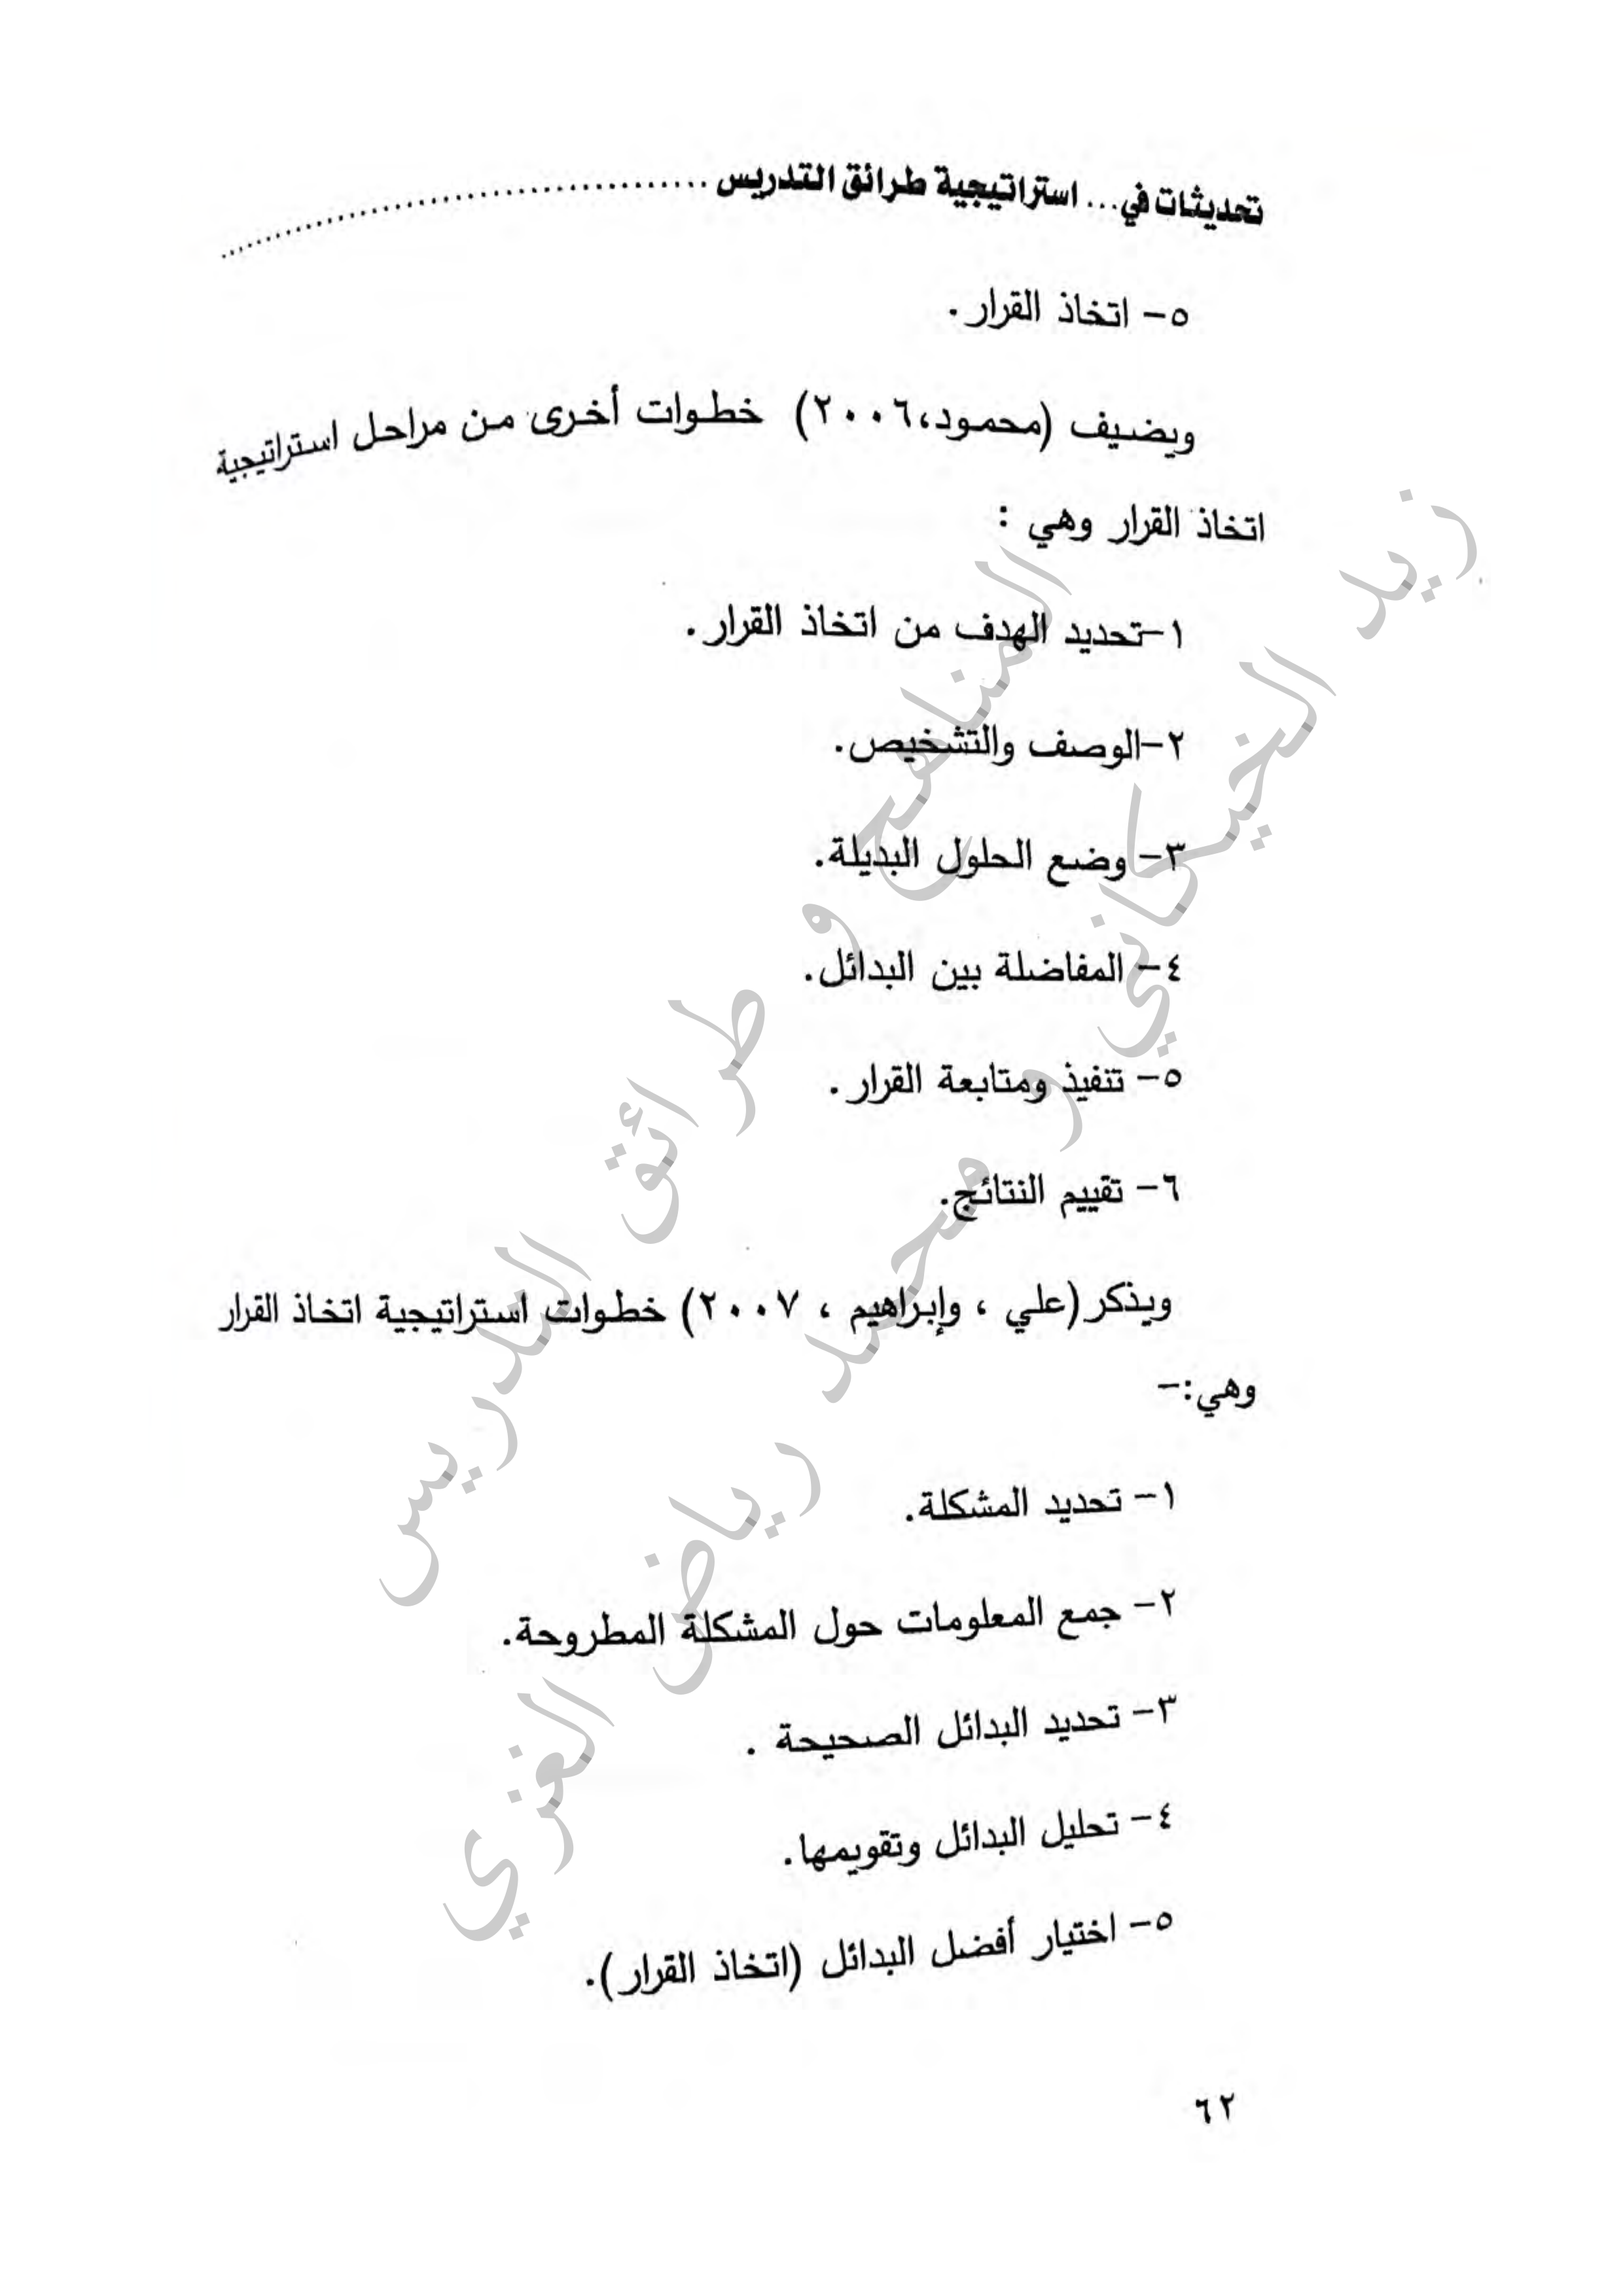 تحديثات في... استراتيجية طرائق التدريس ..........................................
٥- اتخاذ القرار.
ويضيف (محمود،٢٠٠٦) خطوات أخرى من مراحل استراتيجية
اتخاذ القرار وهي :
١-تحديد الهدف من اتخاذ القرار.
٢-الوصف والتشخيص.
٣- وضع الحلول البديلة.
٤- المفاضلة بين البدائل.
٥- تنفيذ ومتابعة القرار.
٦- تقييم النتائج.
ويذكر (علي ، وإبراهيم ، ٢٠٠٧) خطوات استراتيجية اتخاذ القرار
وهي:-
١- تحديد المشكلة.
٢- جمع المعلومات حول المشكلة المطروحة.
٣- تحديد البدائل الصحيحة .
٤- تحليل البدائل وتقويمها.
٥- اختيار أفضل البدائل (اتخاذ القرار).
٦٢
المناهج و طرائق التدريس
زيد الخيكاني و محمد رياض الغزي